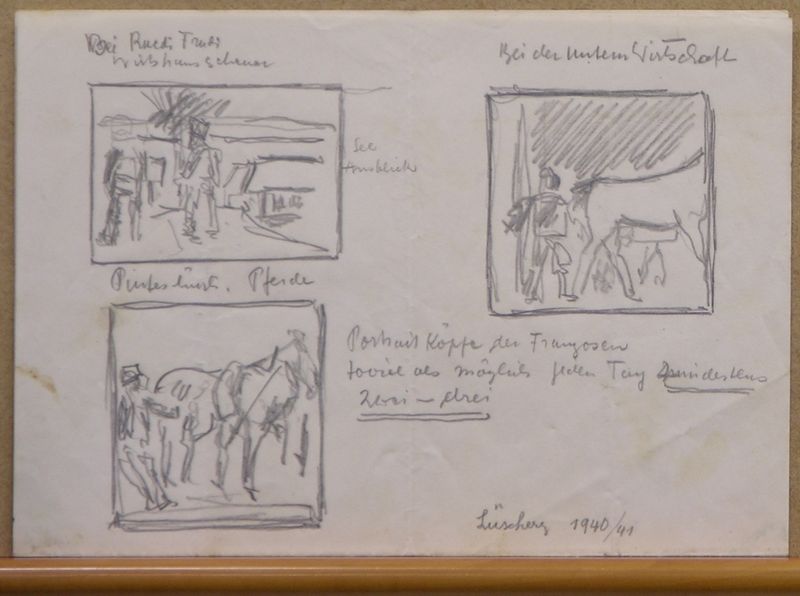 Bei Ruedi Trudi
Wirtshausscheuer
Bei der untern Wirtschaft
See
Ausblick
Pferde
Portrait Köpfe der Franzosen
soviel als möglich jeden Tag mindestens
zwei – drei
Lüscherz 1940/41